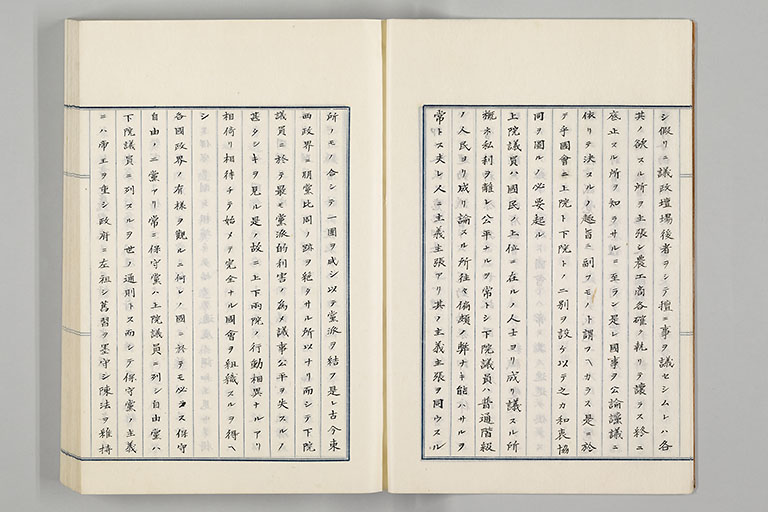 シ假リニ議政壇場後者ヲシテ擅ニ事ヲ議セシムトハ各
其ノ欲スル所ヲ主張シ農工商各確ク執リテ讓ラス終ニ
底止スル所ヲ知ラサルニ至ラン是レ國事ヲ公論讜議ニ
依リテ決スルノ趣旨ニ副フモノト謂フヘカラス是ニ於
テ乎國會ニ上院ト下院トノ二別ヲ設ケ以テ之カ和衷協
同ヲ圖ルノ必要起ル
上院議員ハ國民ノ上位ニ在ルノ人士ヨリ成リ議スル所
概ネ私利ヲ離レ公平ナルヲ常トシ下院議員ハ普通階級
ノ人民ヨリ成リ論スル所往々偏頗ノ弊ナキ能ハサルヲ
常トス夫レ人ニ主義主張アリ其ノ主義主張ヲ同ウスル
所ノモノ合シテ一團ヲ成シ以テ黨派ヲ結フ是レ古今東
西政界ニ朋黨比周ノ跡ヲ絶タサル所以ナリ而シテ下院
議員ニ於テ最モ黨派的利害ノ為メ議事公平ヲ失スルノ
甚タシキヲ見ル是ノ故ニ上下兩院ノ行動相異ナルアリ
相倚リ相待チテ始メテ完全ナル國會ヲ組織スルヲ得ヘ
シ
各國政界ノ有樣ヲ觀ルニ何レノ國ニ於テモ必ラス保守
自由ノ二黨アリ常ニ保守黨ハ上院議員ニ列シ自由黨ハ
下院議員ニ列スルヲ世ノ通則トス而シテ保守黨ノ主義
ニハ帝王ヲ重シ政府ニ左袒シ舊習ヲ墨守シ陳法ヲ維持